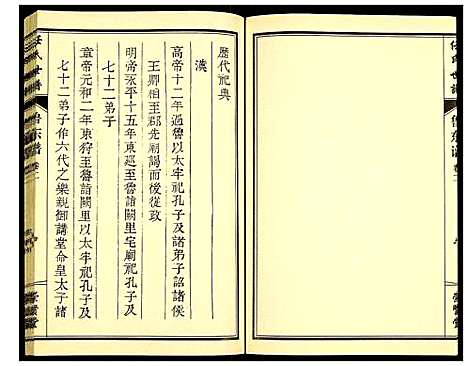 歷代祀典
漢
高帝十二年過魯以太牢祀孔子及諸弟子詔諸侯
王卿相至郡先廟謁而後從政
明帝永平十五年東巡至魯詣闕里宅廟祀孔子及
七十二弟子
章帝元和二年東狩至魯詣闕里以太牢祀孔子及
七十二弟子作六代之樂親御講堂命皇太子諸
任氏世譜
魯东谱
任氏世譜
魯东谱